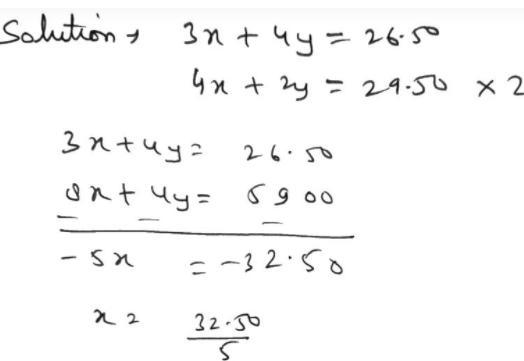 Solution → 3x + 4y = 26.50
4x + 2y = 29.50 × 2
3x + 4y = 26.50
8x + 4y = 59 00
− − −
− 5x = − 32.50
x = 32.50
5